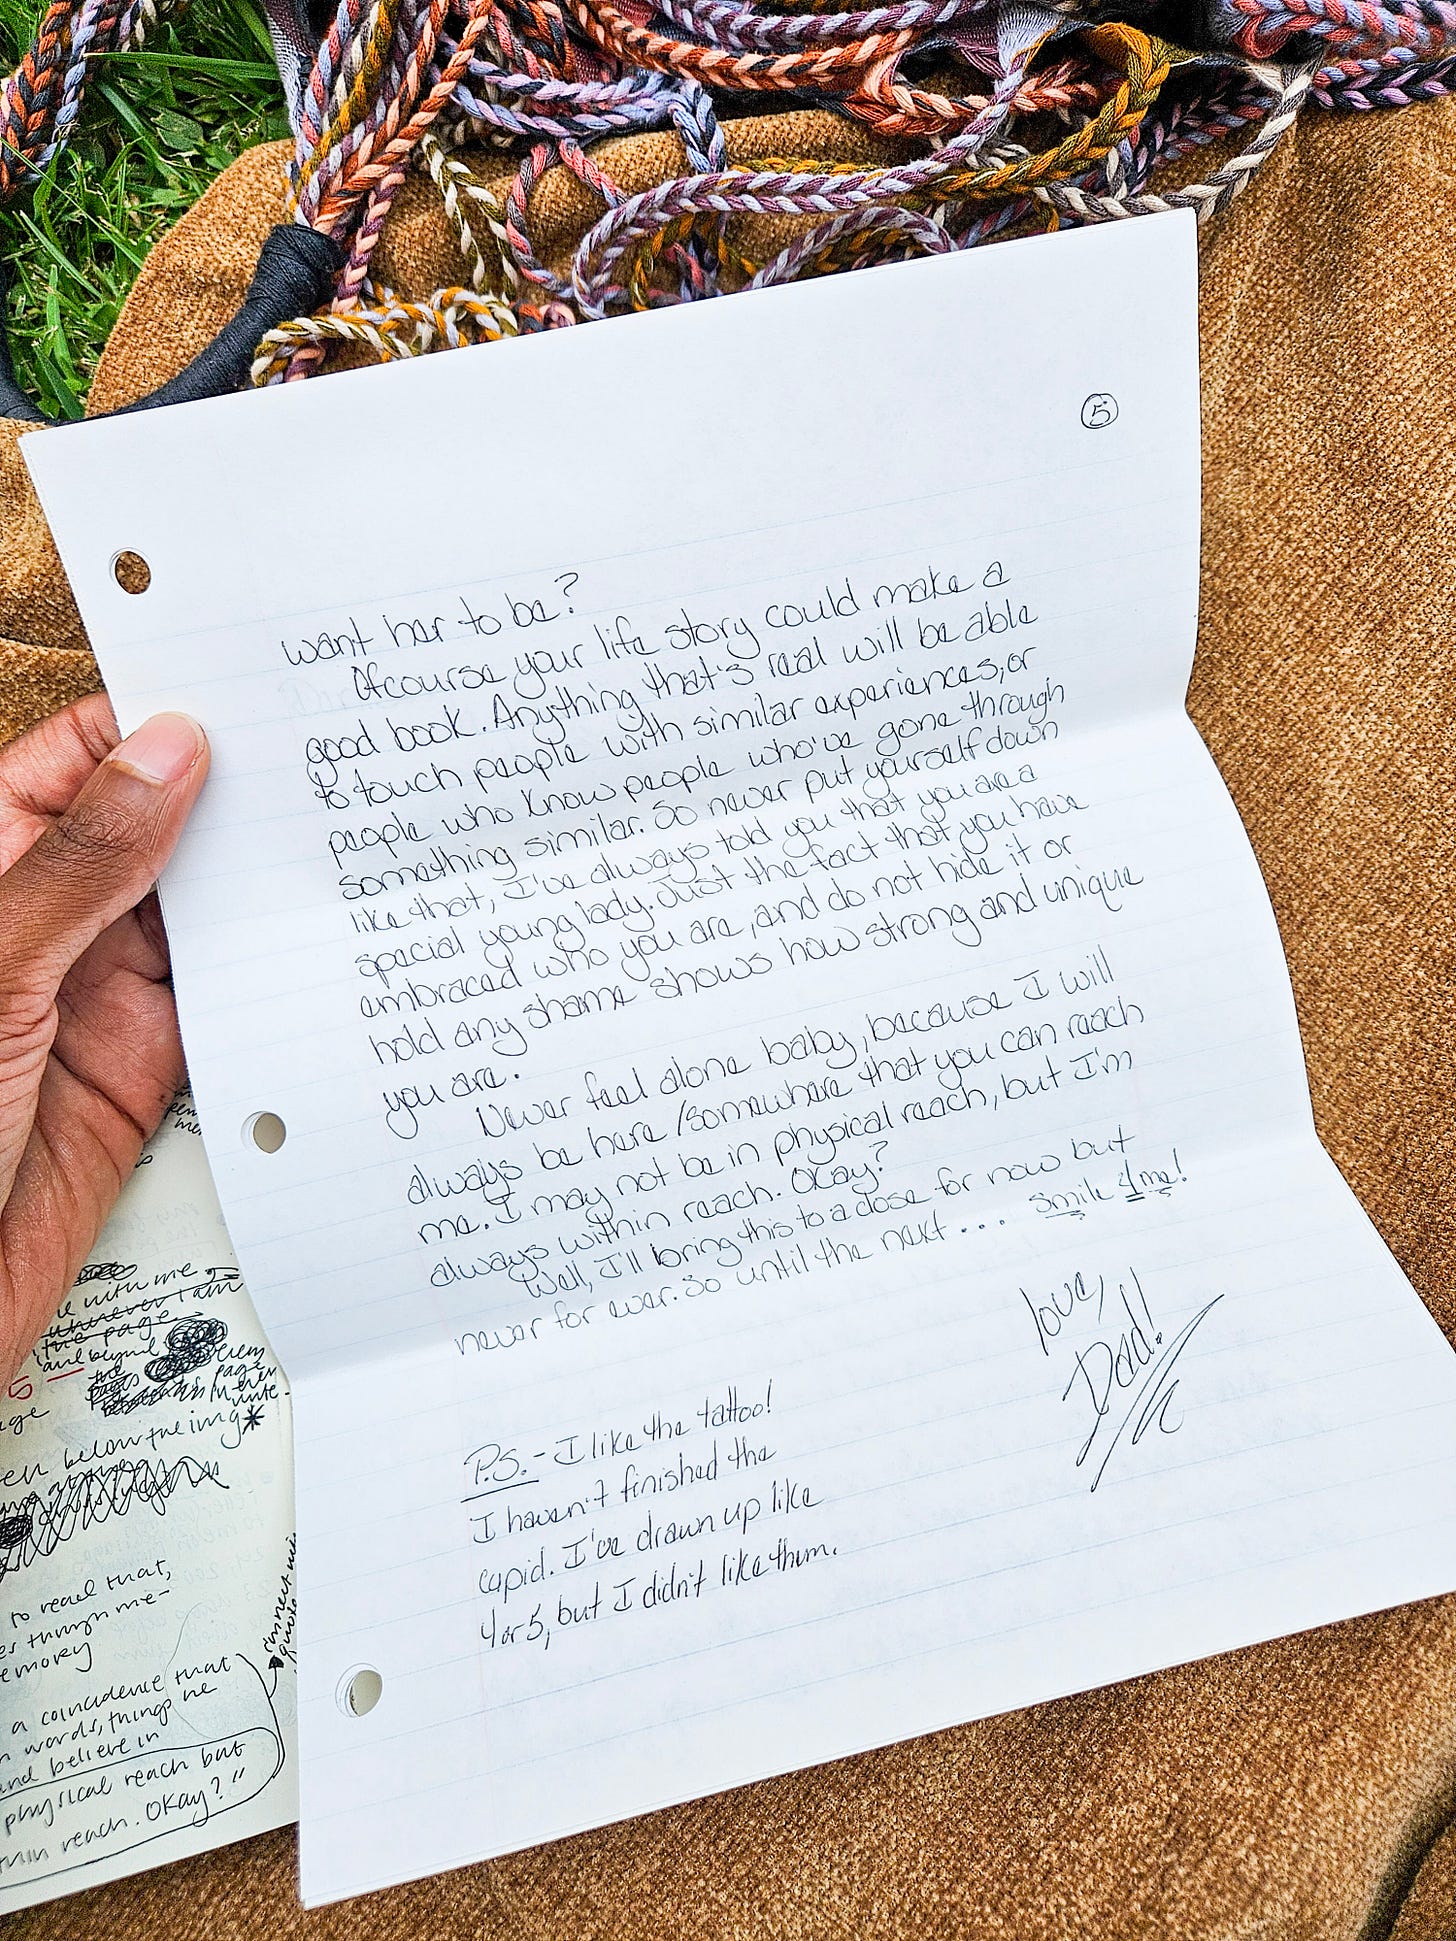 5
want her to be?
Ofcourse your life story could make a
good book. Anything that's real will be able
to touch people with similar experiences, or
people who know people who've gone through
something similar. So never put yourself down
like that, I've always told you that you are a
special young lady. Just the fact that you have
embraced who you are, and do not hide it or
hold any shame shows how strong and unique
you are.
Never feel alone baby, because I will
always be here/somewhere that you can reach
me. I may not be in physical reach, but I'm
always within reach. Okay?
Well, I'll bring this to a close for now but
never for ever. So until the next... Smile 4 me!
love,
Dad!
P.S. - I like the tattoo!
I haven't finished the
cupid. I've drawn up like
4 or 5, but I didn't like them.
with me
whenever I am
the page
and beyond
the
pages
5
below the img*
to read that,
through me-
a coincidence that
words, things he
and believe in
physical reach but
reach. Okay?"